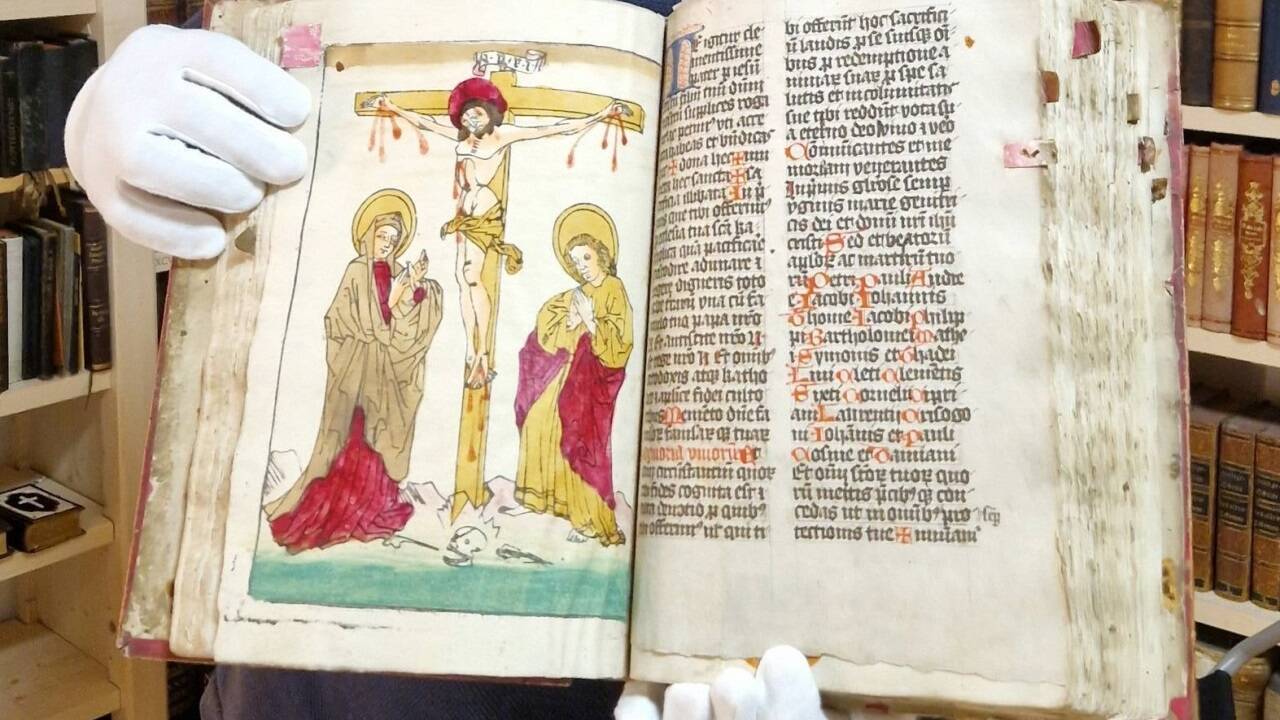 I N R I
Te igitur cle
mentissime
pater p iesu
filiu tuu dnm
supplices roga
petim' vt acce
habeas et bndicas
+ dona hec + mu
hec sancta + sa
illibata In p
que tibi offerim'
ecclesia tua scta ka
tholica qua pacificare
custodire adunare ⁊
regere digneris toto
orbe terraru vna cu fa
mulo tuo papa nro
Et antistite nro N
rege nro N Et omib'
orthodoxis atqz katho
et aplice fidei culto
ribus Memento dne fa
mulor famular qz tuar
memoria vivorum Et
omniu circustantiu quor
tibi fides cognita est ⁊
nota devotio p quib'
tibi offerim' vl' qui ti
bi offerut hoc sacrifici
u laudis p se suisqz oi
bus p redemptione a
nimar suar p spe sa
lutis et incolumitatis
sue tibi reddut vota su
a eterno deo vivo ⁊ vero
Comunicantes et me
moriam venerantes
Inprimis gliose semp
virginis marie genitri
cis dei et domi nri ihu
cristi Sed et beatoru
aplor ac martiru tuo
ru Petri Pauli Andre
e Jacobi Johannis
Thome Jacobi Philip
pi Bartholomei Mathe
i Symonis et Thadei
Lini Cleti Clementis
Sixti Cornelii Cipri
ani Laurentii Crisogo
ni Johannis et Pauli
Cosme et Damiani
Et omiu sctor tuor quo
ru meritis pcib' qz con
cedas ut in omib' pro
tectionis tue + muniam'